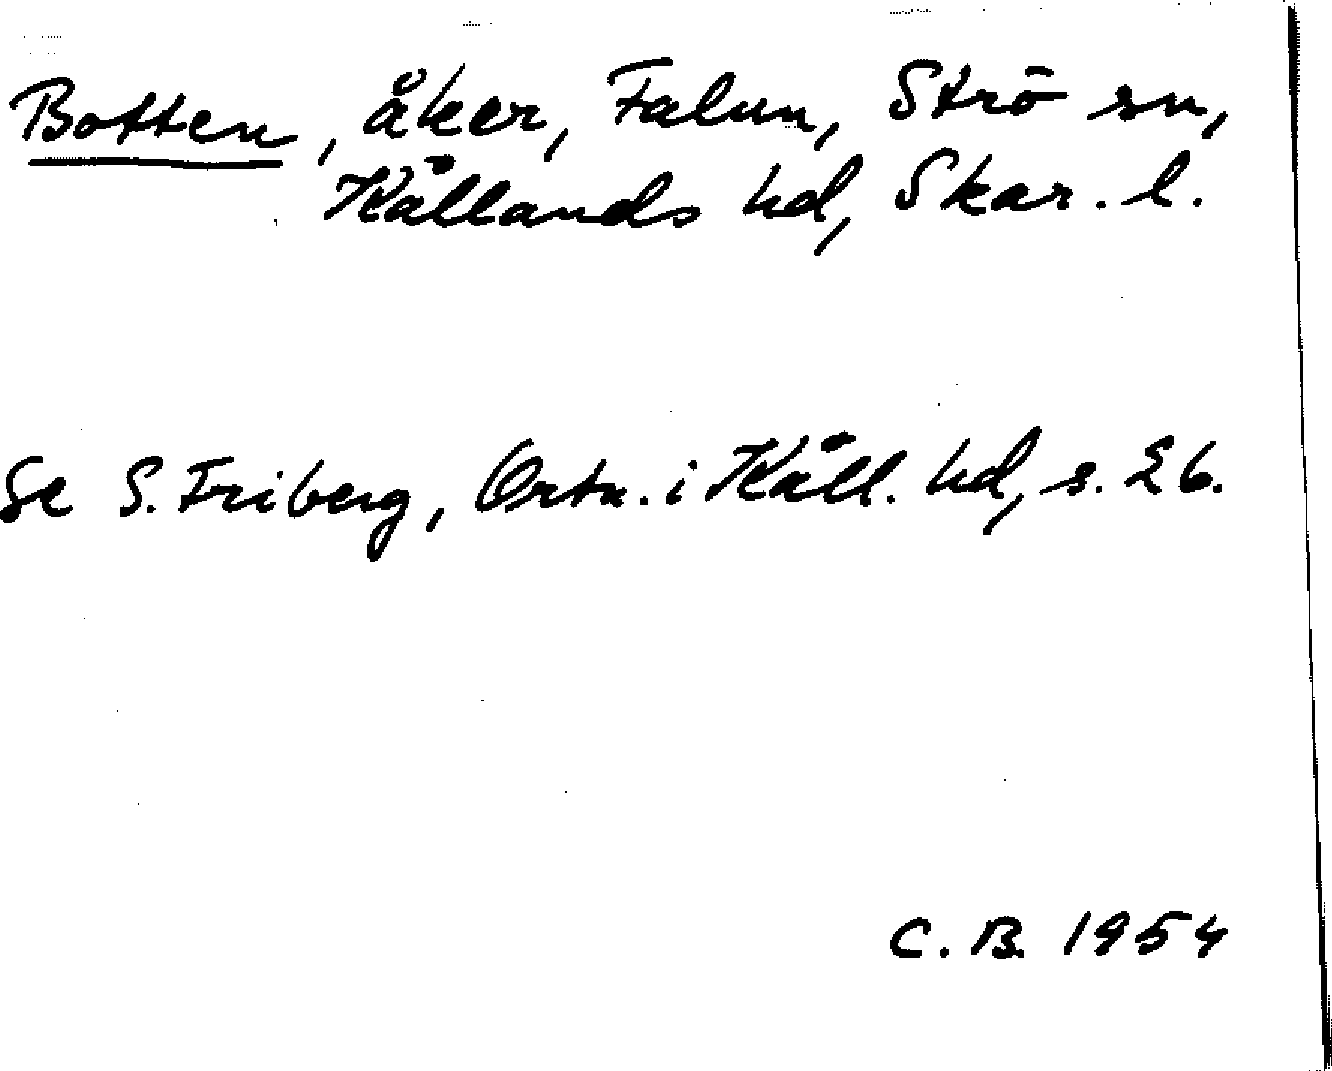 Botten, åker, Falun, Strö sn,
Kållands hd, Skar. l.
Se S. Friberg, Ortn. i Kåll. hd, s. 26.
C. B. 1954